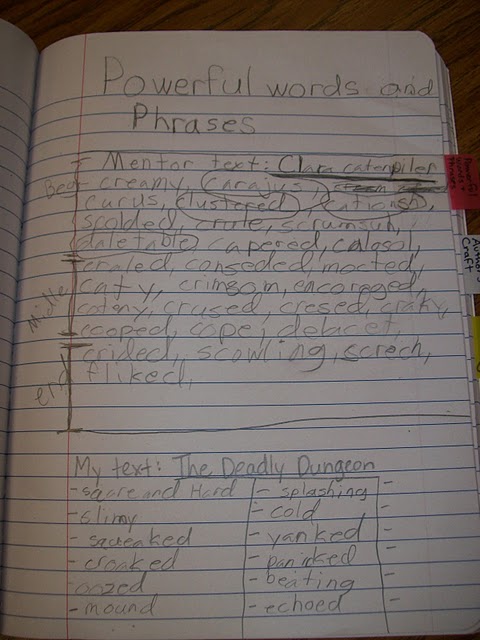 Powerful words and
Phrases
Mentor text: Clara caterpiler
Beg creamy, carajus,
curus, clustered, cationsh,
scolded, crule, scrumsuh,
daletable, capered, colosol,
craled, conseded, mocted,
Middle caty, crimsom, encoreged,
coteny, crused, cresed, craky,
cooped, cope, delacet,
crided, scowling, screch,
end fliked,
My text: The Deadly Dungeon
- sqare and Hard - splashing -
- slimy - cold -
- sqeaked - yanked -
- croaked - panicked -
oozed - beating -
- mound - echoed -
Powerful words + Phrases
Author's Craft